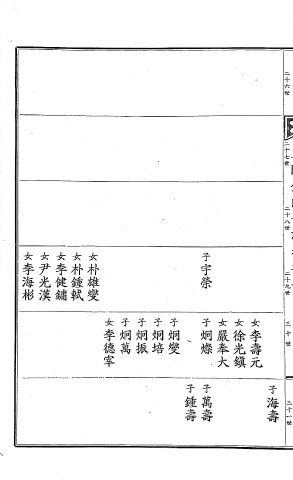 二十六世
二十七世
二十八世
二十九世
三十世
三十一世
子宇榮
女朴雄燮
女朴鍾軾
女李健鏞
女尹光漢
女李海彬
女李壽元
女徐光鎭
女嚴奉大
子炯燦
子炯燮
子炯培
子炯振
子炯萬
女李德宰
子海壽
子萬壽
子鍾壽